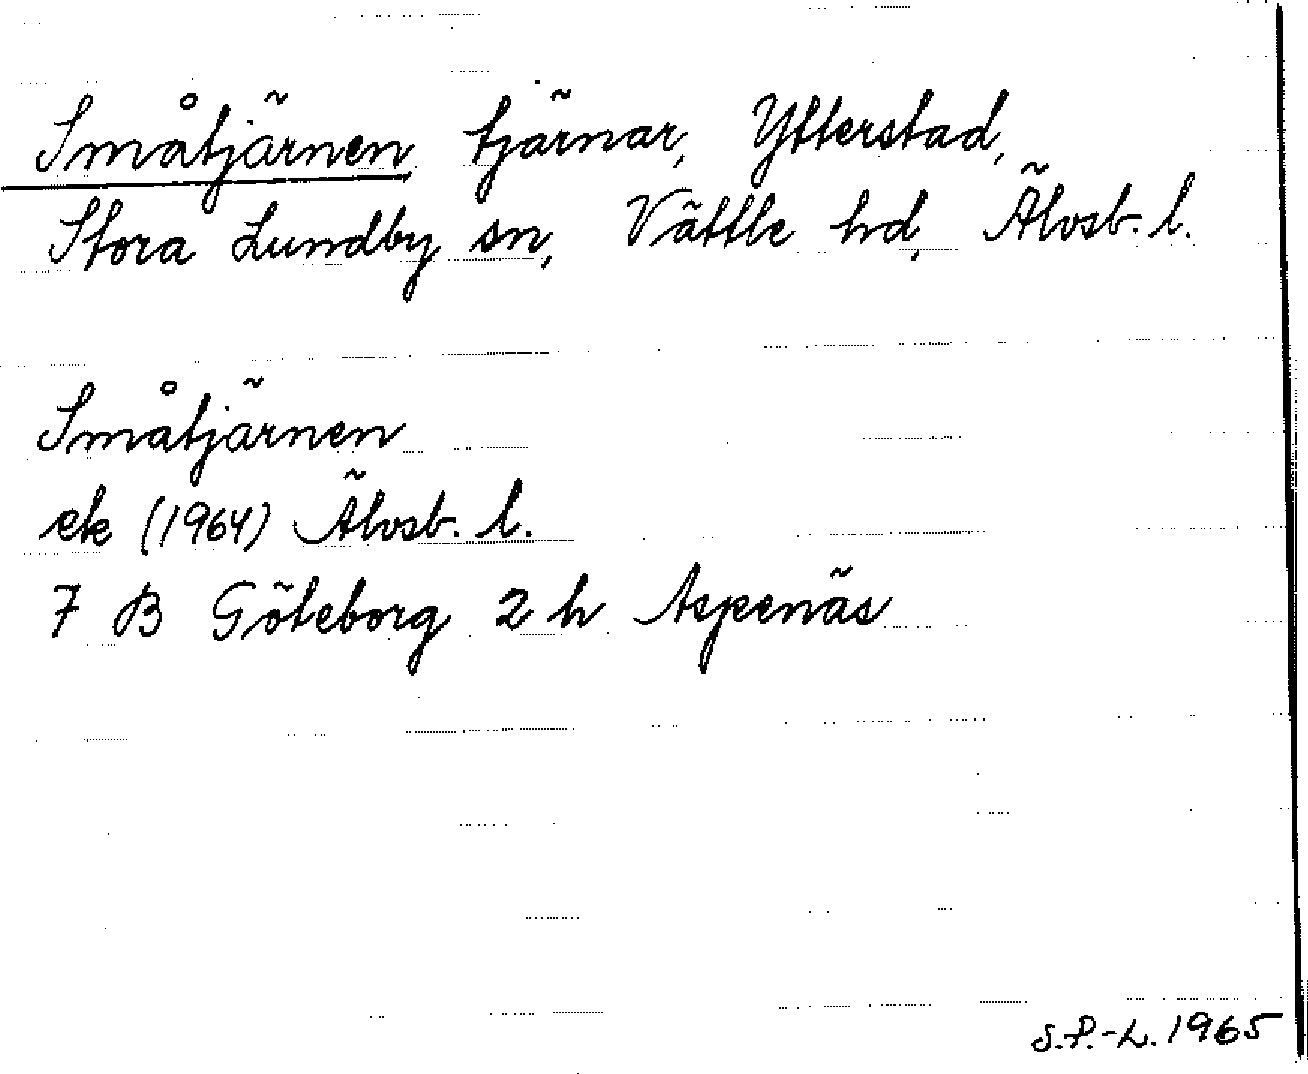 Småtjärnen tjärnar, Ytterstad,
Stora Lundby sn, Vättle hd, Älvsb. l.
Småtjärnen
ek (1964) Älvsb. l.
7 B Göteborg 2 h Aspenäs
S.P.-L. 1965